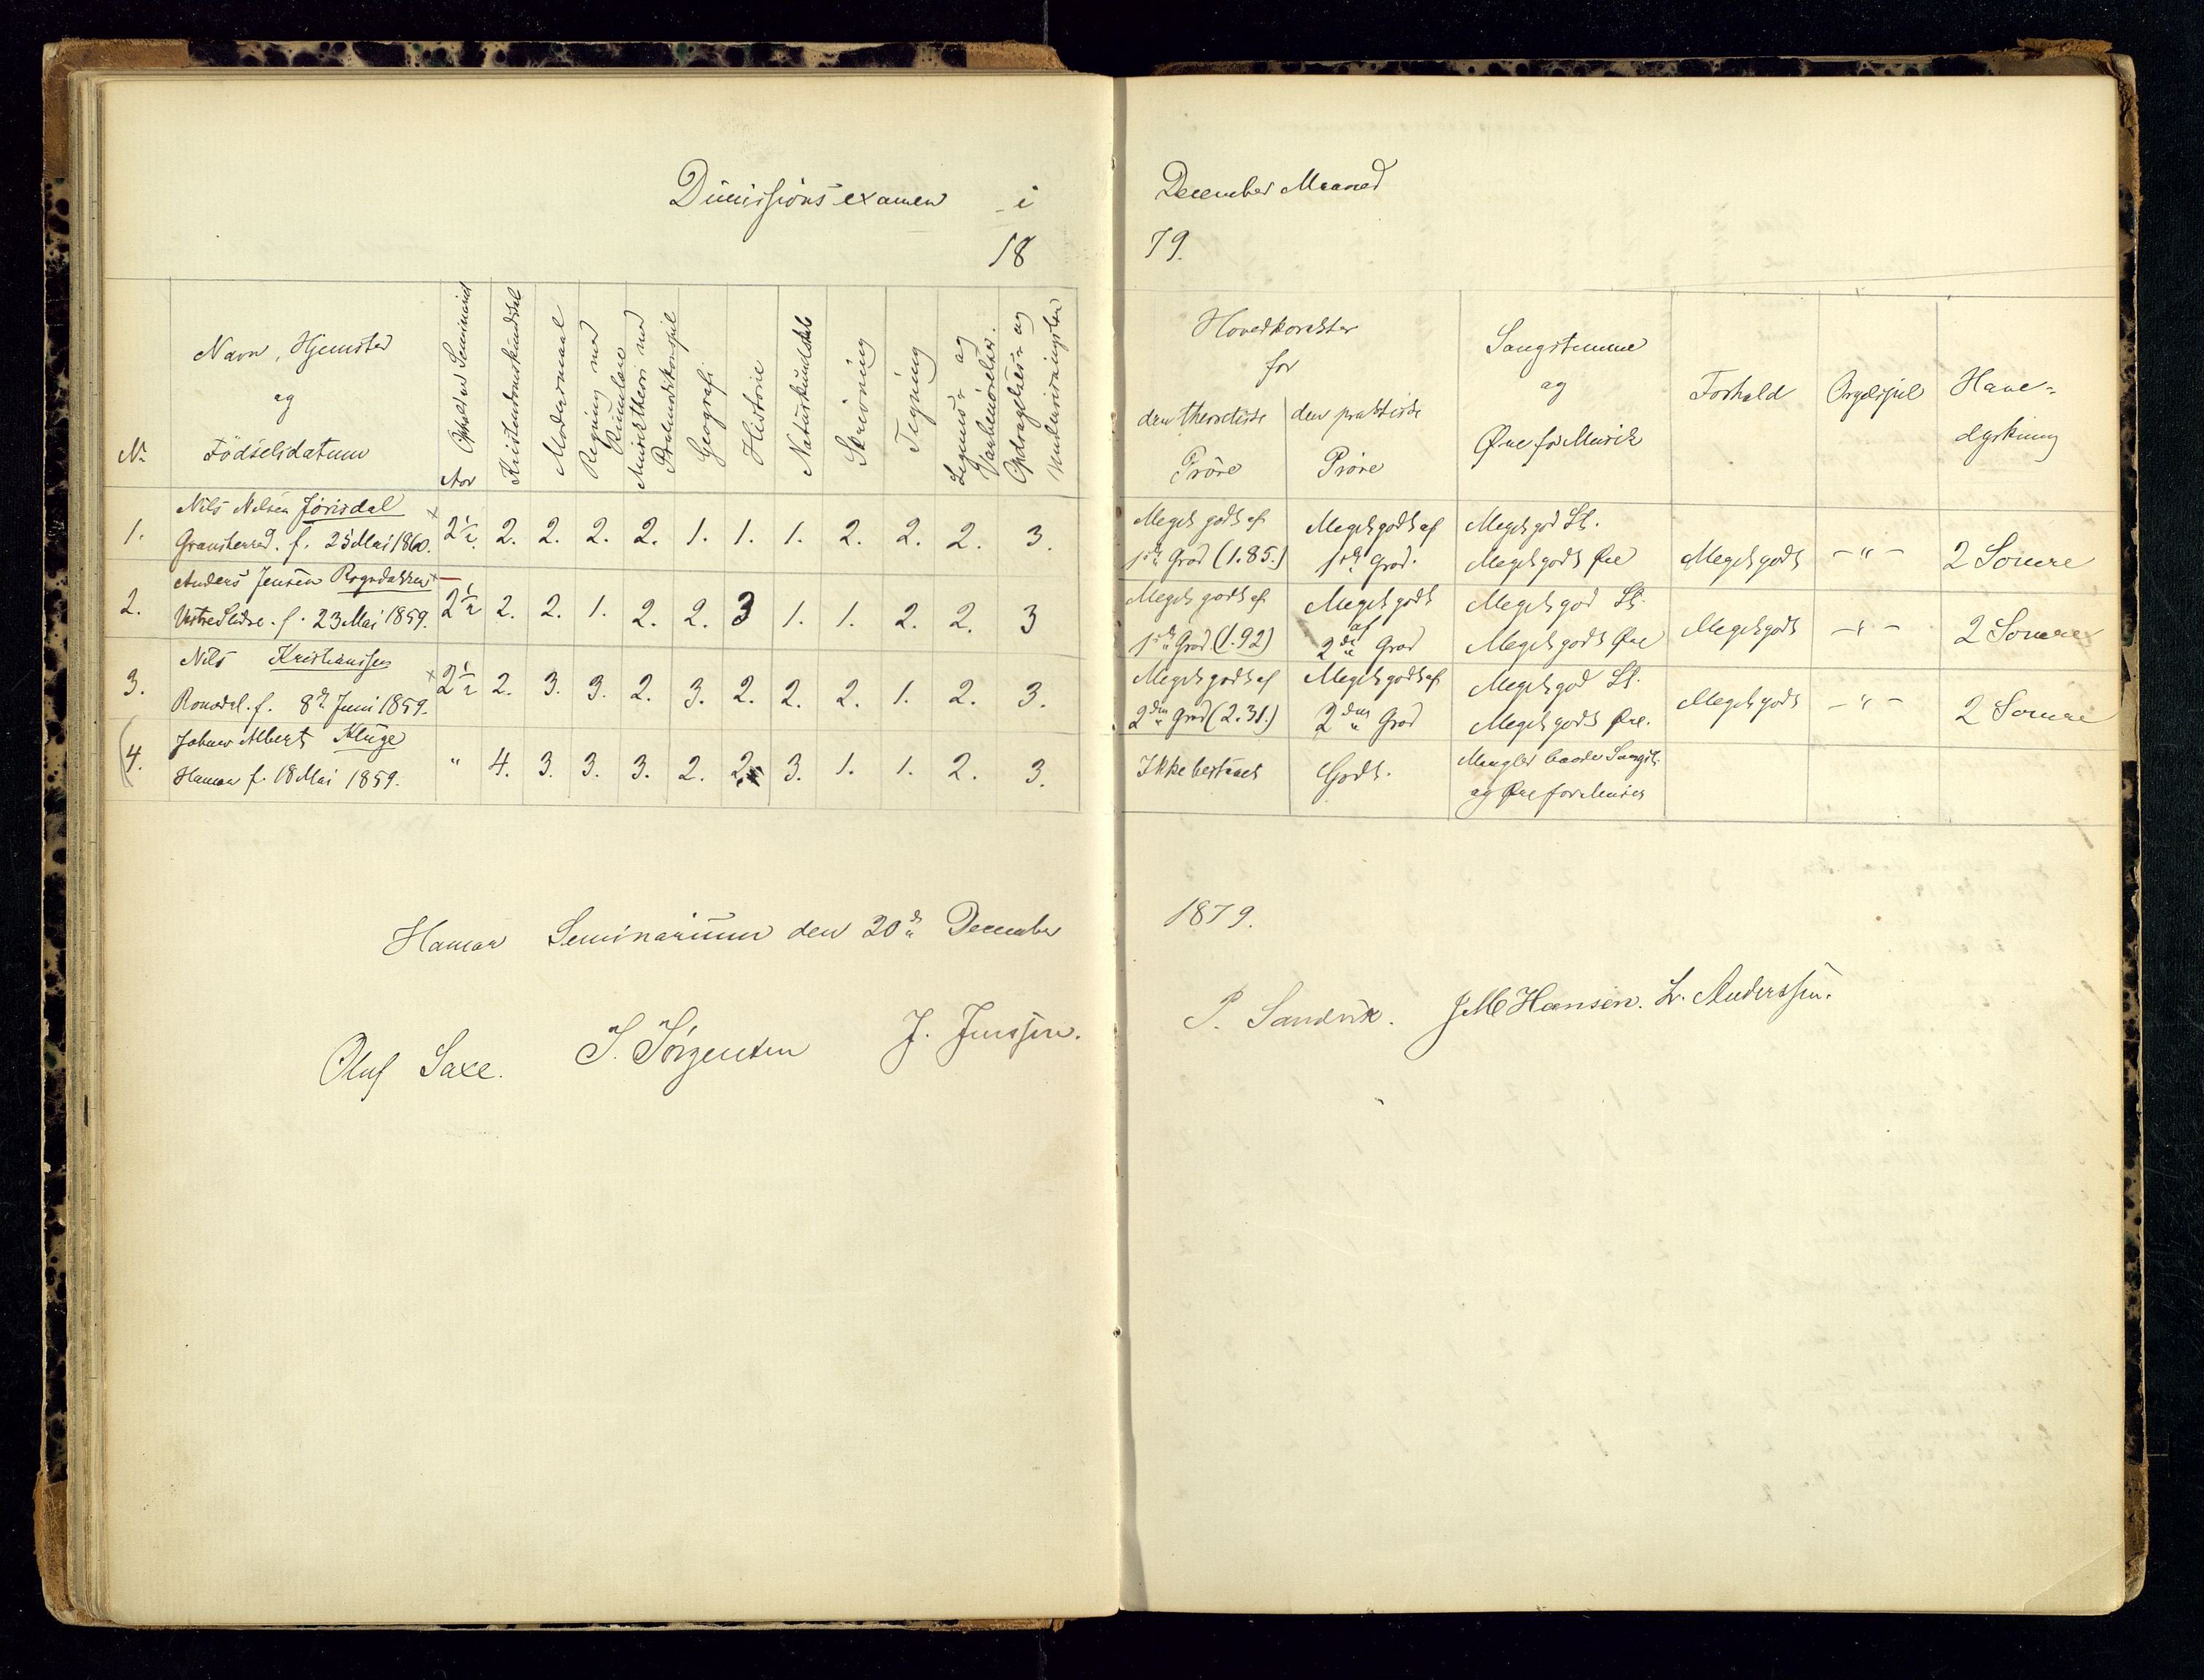 Dimissionsexamen i
18
No
Navn, Hjemsted
og
Födselsdatum
Aar Ophold ved Seminariet
Kristendomskundskab
Modersmaal
Regning med
Rumlære
Musiktheori med
Psalmodikonspil
Geografi
Historie
Naturkundskab
Skrivning
Tegning
Legems- og
Vaabenövelser.
Opdragelses- og
Undervisningslære
1. Nils Nilsen Jörisdal × 2½ 2. 2. 2. 2. 1. 1. 1. 2. 2. 2. 3.
Gransherred. f. 25 Mai 1860.
2. Anders Jensen Rogndokken × 2½ 2. 2. 1. 2. 2. 3 1. 1. 2. 2. 3
Vestre Slidre. f. 23 Mai 1859.
3. Nils Kristiansen × 2½ 2. 3. 3. 2. 3. 2. 2. 2. 1. 2. 3.
Romsdal. f. 8de Juni 1859.
(4. Johan Albert Kluge " 4. 3. 3. 3. 2. 2. 3. 1. 1. 2. 3.
Hamar f. 18 Mai 1859.
Hamar Seminarium den 20de December
Oluf Saxe. S. Sörgensen J. Jenssen.
December Maaned
79.
Hovedkarakter
for
den theoretiske
Pröve
den praktiske
Pröve
Sangstemme
og
Øre for Musik
Forhold
Orgelspil
Have-
dyrkning
Meget godt af Meget godt af Meget god St.
1ste Grad (1.85.) 1ste Grad. Meget godt Øre Meget godt - " - 2 Somre
Meget godt af Meget godt Meget god St.
1ste Grad (1.92) af 2den Grad Meget godt Øre Meget godt - " - 2 Somre
Meget godt af Meget godt af Meget god St.
2den Grad (2.31.) 2den Grad Meget godt Øre. Meget godt - " - 2 Somre
Ikke bestaaet Godt. Mangler baade Sangst.
og Øre for Musik
1879.
P. Sandvik. J M Hansen. L. Anderssen.